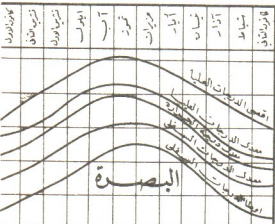 كانون الثاني
شباط
آذار
نيسان
أيار
حزيران
تموز
آب
أيلول
تشرين الأول
تشرين الثاني
كانون الأول
أقصى الدرجات العليا
معدل الدرجات العليا
معدل درجة الحرارة
معدل الدرجات السفلى
البصرة